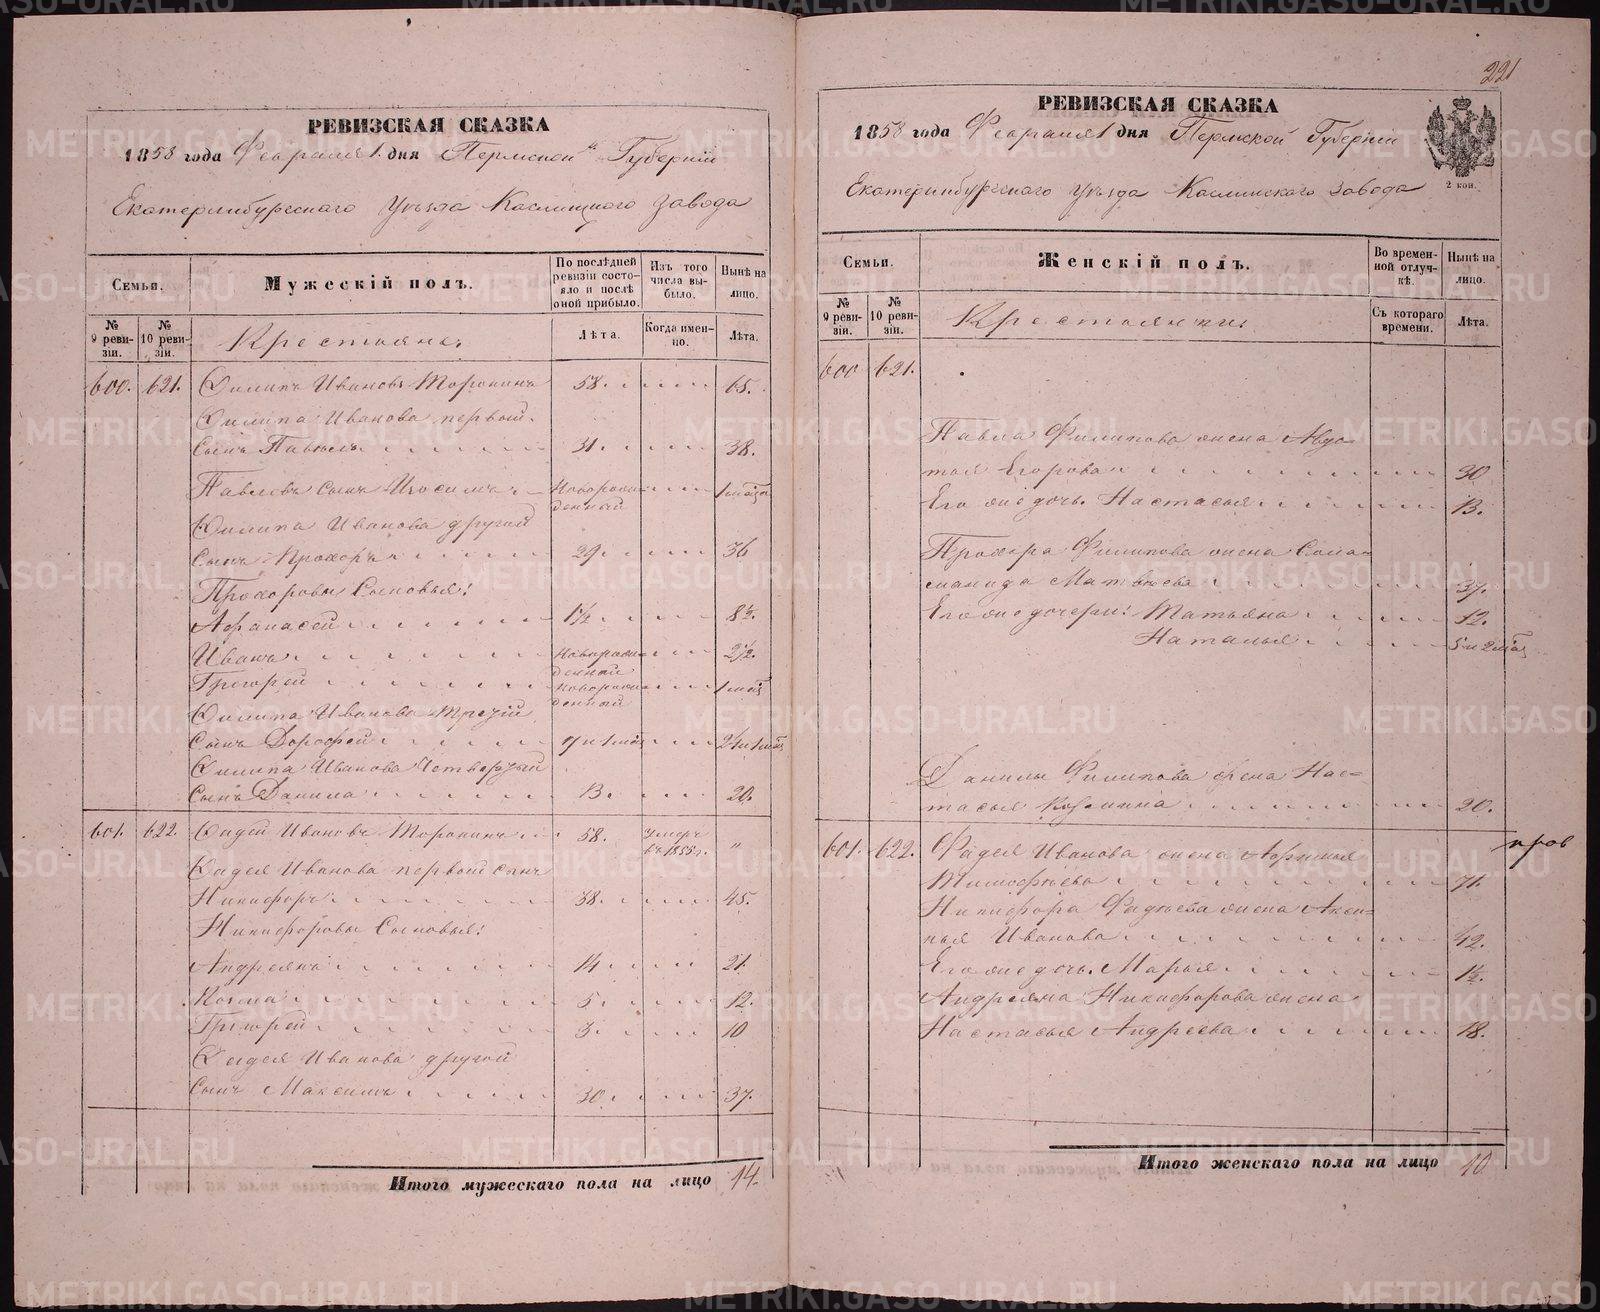 РЕВИЗСКАЯ СКАЗКА
1858 года Февраля 1 дня Пермской Губерніи
Екатеринбургскаго Уѣзда Каслинскаго Завода
Семьи.
Мужескій полъ.
По послѣдней ревизіи состояло и послѣ оной прибыло.
Изъ того числа выбыло.
Нынѣ на лицо.
№ 9 ревизіи.
№ 10 ревизіи.
Крестьяне.
Лѣта.
Когда именно.
Лѣта.
600. 621. Филипъ Ивановъ Торокинъ 58. 65.
Филипа Иванова первый
Сынъ Павелъ 31. 38.
Павловъ сынъ Изосимъ Новорожденный 1 мѣсяца
Филипа Иванова другой
Сынъ Прохоръ 29. 36
Прохоровы Сыновья:
Афанасей 1½ 8½.
Иванъ Новорожденный 2½.
Григорей Новорожденный 1 мѣся
Филипа Иванова третій
Сынъ Дорофей 17 и 1 мѣс 24 и 1 мѣс
Филипа Иванова Четвертый
Сынъ Данила 13. 20.
601. 622. Фадей Ивановъ Торокинъ 58. умеръ въ 1855 г. "
Фадея Иванова первой сынъ
Никифоръ 38. 45.
Никифоровы Сыновья:
Андреянъ 14. 21.
Козма 5. 12.
Григорей 3. 10
Фадея Иванова другой
Сынъ Максимъ 30. 37.
Итого мужескаго пола на лицо 14.
221
РЕВИЗСКАЯ СКАЗКА
1858 года Февраля 1 дня Пермской Губерніи
2 коп.
Екатеринбургскаго Уѣзда Каслинскаго Завода
Семьи.
Женскій полъ.
Во временной отлучкѣ.
Нынѣ на лицо.
№ 9 ревизіи.
№ 10 ревизіи.
Крестьянки.
Съ котораго времени.
Лѣта.
600 621.
Павла Филипова жена Авдотья Егорова 30
Его жъ дочь Настасья 13.
Прохора Филипова жена Соломанида Матвѣева 37.
Его жъ дочери: Татьяна 12.
Наталья 5 и 2 мѣс
Данилы Филипова жена Настасья Козмина 20.
601. 622. Фадея Иванова жена Афимья Тимофѣева 71.
пров
Никифора Фадѣева жена Аксинья Иванова 42.
Его жъ дочь Марья 1½.
Андреяна Никифорова жена
Настасья Андреева 18.
Итого женскаго пола на лицо 10
METRIKI.GASO-URAL.RU